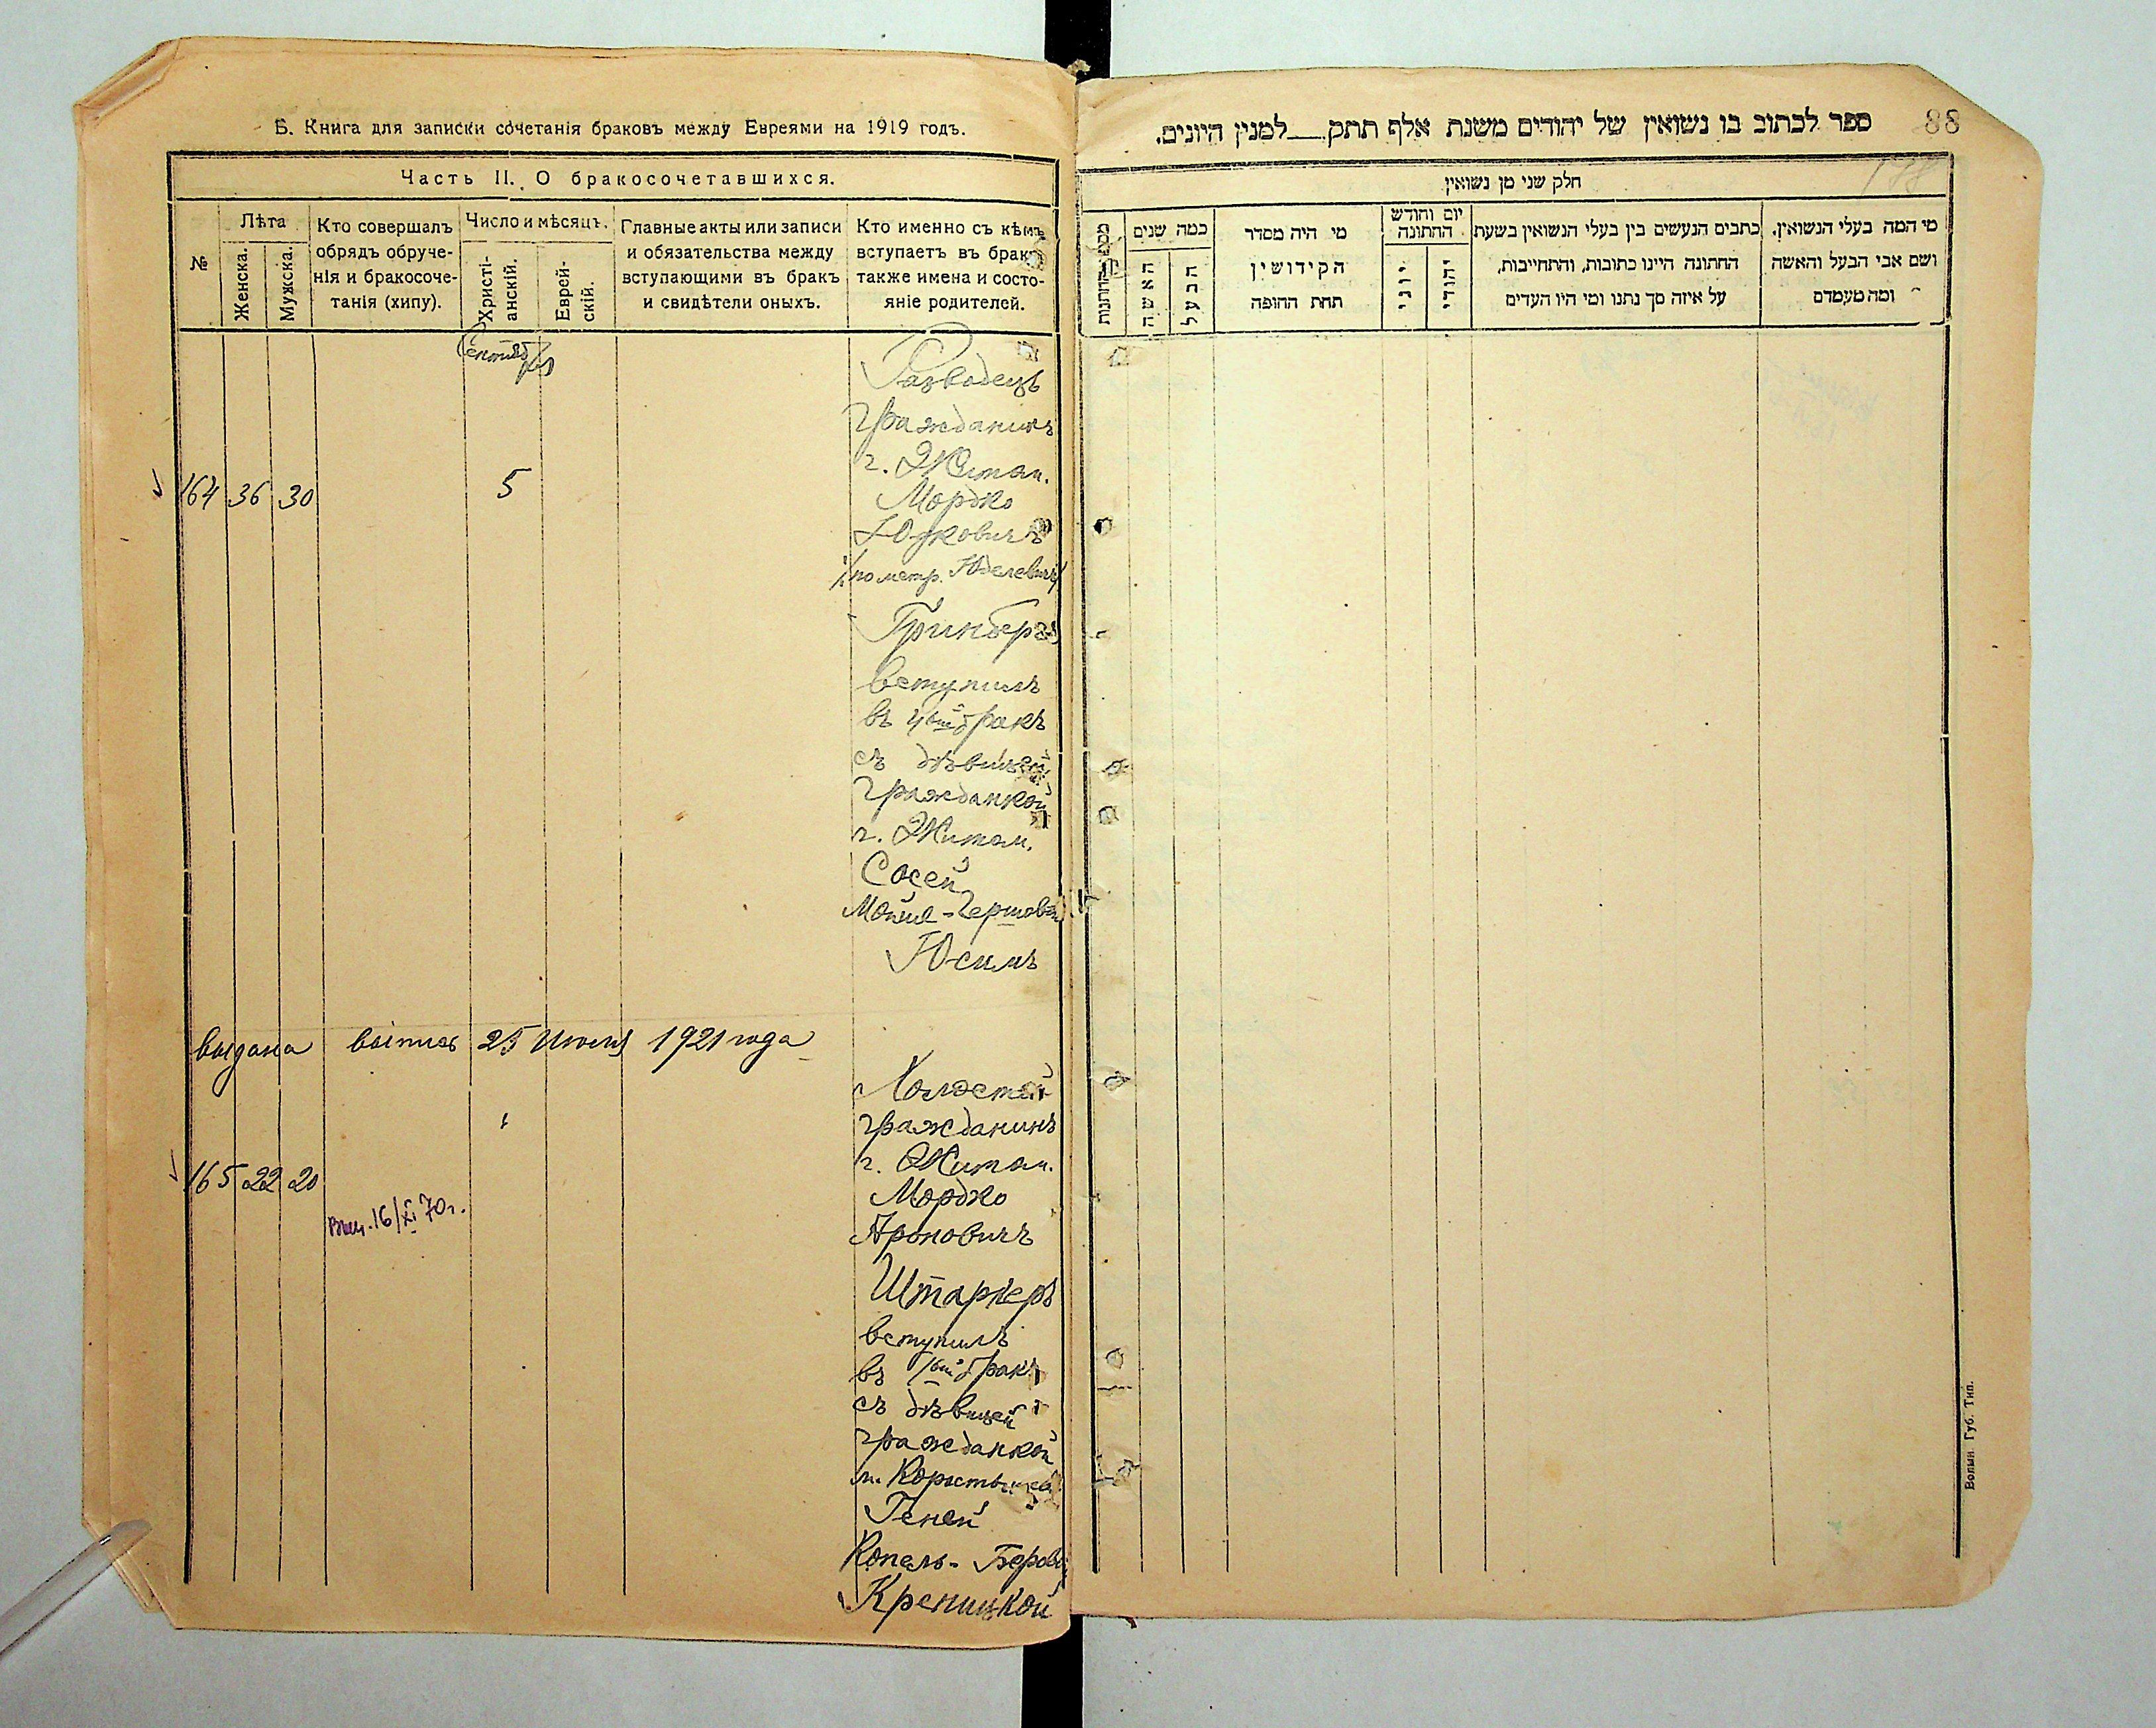 Б. Книга для записки сочетанія браковъ между Евреями на 1919 годъ.
Часть II. О бракосочетавшихся.
№
Лѣта
Женска.
Мужска.
Кто совершалъ
обрядъ обруче-
нія и бракосоче-
танія (хипу).
Число и мѣсяцъ.
Христі-
анскій.
Еврей-
скій.
Главные акты или записи
и обязательства между
вступающими въ бракъ
и свидѣтели оныхъ.
Кто именно съ кѣмъ
вступаетъ въ бракъ
также имена и состо-
яніе родителей.
Сентяб
ря
164 36 30 5
Разводецъ
гражданинъ
г. Житом.
Мордко
Юдковичъ
/по метр. Юделевичъ/
Гринбергъ
вступилъ
въ 4ый бракъ
съ дѣвицей
гражданкой
г. Житом.
Сосей
Мойше-Гершовой
Юсимъ
выдана выпись 25 Июля 1921 года
165 22 20
Выд. 16/XI 70 г.
Холостой
гражданинъ
г. Житом.
Мордко
Ароновичъ
Штаркеръ
вступилъ
въ 1ый бракъ
съ дѣвицей
гражданкой
м. Коростышева
Геней
Копель-Беровой
Креницкой
88
188
ספר לכתוב בו נשואין של יהודים משנת אלף תתק__למנין היונים.
חלק שני מן נשואין
מי המה בעלי הנשואין,
ושם אבי הבעל והאשה
ומה מעמדם
כתבים הנעשים בין בעלי הנשואין בשעת
החתונה היינו כתובות, והתחייבות,
על איזה סך נתנו ומי היו העדים
יום וחודש
החתונה
יהודי
יוני
מי היה מסדר
הקידושין
תחת החופה
כמה שנים
הבעל
האשה
מספר החתונות
Волын. Губ. Тип.